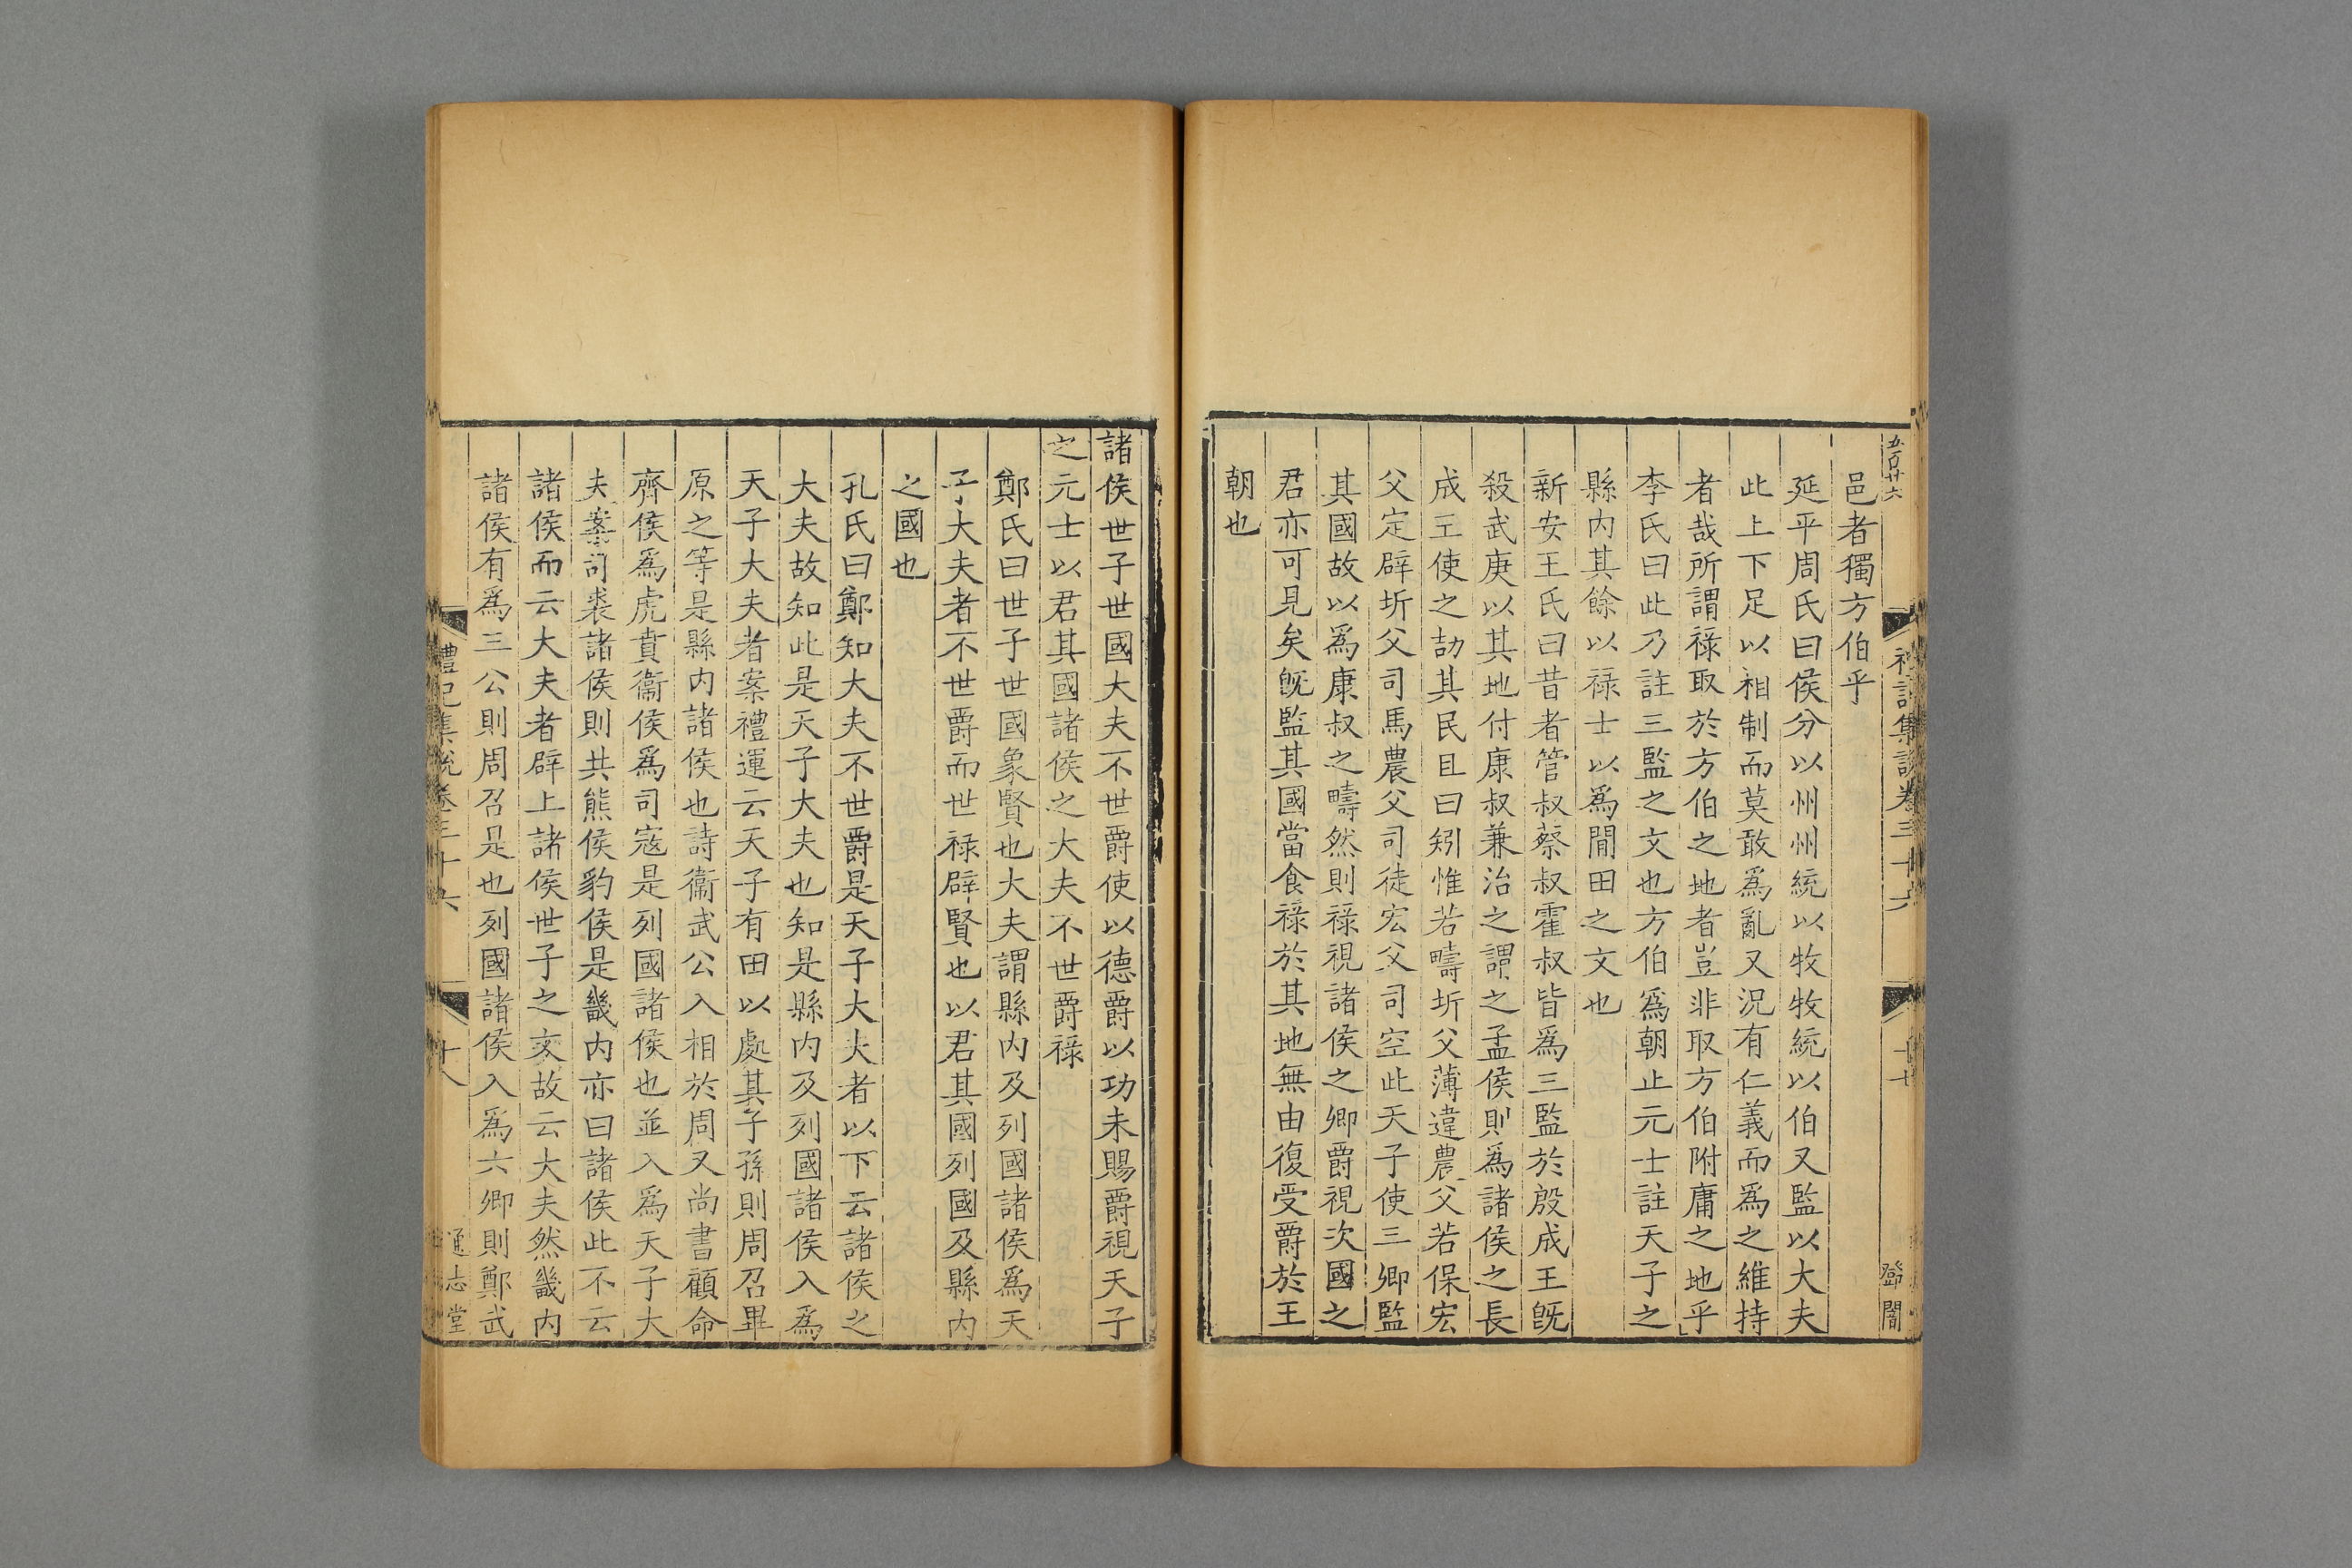 禮記集說卷三十六
十七
鄧閣
邑者獨方伯乎
延平周氏曰侯分以州州統以牧牧統以伯又監以大夫
此上下足以相制而莫敢爲亂又況有仁義而爲之維持
者哉所謂祿取於方伯之地者豈非取方伯附庸之地乎
李氏曰此乃註三監之文也方伯爲朝止元士註天子之
縣内其餘以祿士以爲閒田之文也
新安王氏曰昔者管叔蔡叔霍叔皆爲三監於殷成王旣
殺武庚以其地付康叔兼治之謂之孟侯則爲諸侯之長
成王使之劼其民且曰矧惟若疇圻父薄違農父若保宏
父定辟圻父司馬農父司徒宏父司空此天子使三卿監
其國故以爲康叔之疇然則祿視諸侯之卿爵視次國之
君亦可見矣旣監其國當食祿於其地無由復受爵於王
朝也
諸侯世子世國大夫不世爵使以德爵以功未賜爵視天子
之元士以君其國諸侯之大夫不世爵祿
鄭氏曰世子世國象賢也大夫謂縣内及列國諸侯爲天
子大夫者不世爵而世祿辟賢也以君其國列國及縣内
之國也
孔氏曰鄭知大夫不世爵是天子大夫者以下云諸侯之
大夫故知此是天子大夫也知是縣内及列國諸侯入爲
天子大夫者案禮運云天子有田以處其子孫則周召畢
原之等是縣内諸侯也詩衞武公入相於周又尚書顧命
齊侯爲虎賁衞侯爲司寇是列國諸侯也並入爲天子大
夫案司裘諸侯則共熊侯豹侯是畿内亦曰諸侯此不云
諸侯而云大夫者辟上諸侯世子之文故云大夫然畿内
諸侯有爲三公則周召是也列國諸侯入爲六卿則鄭武
禮記集說卷三十六
十八
通志堂